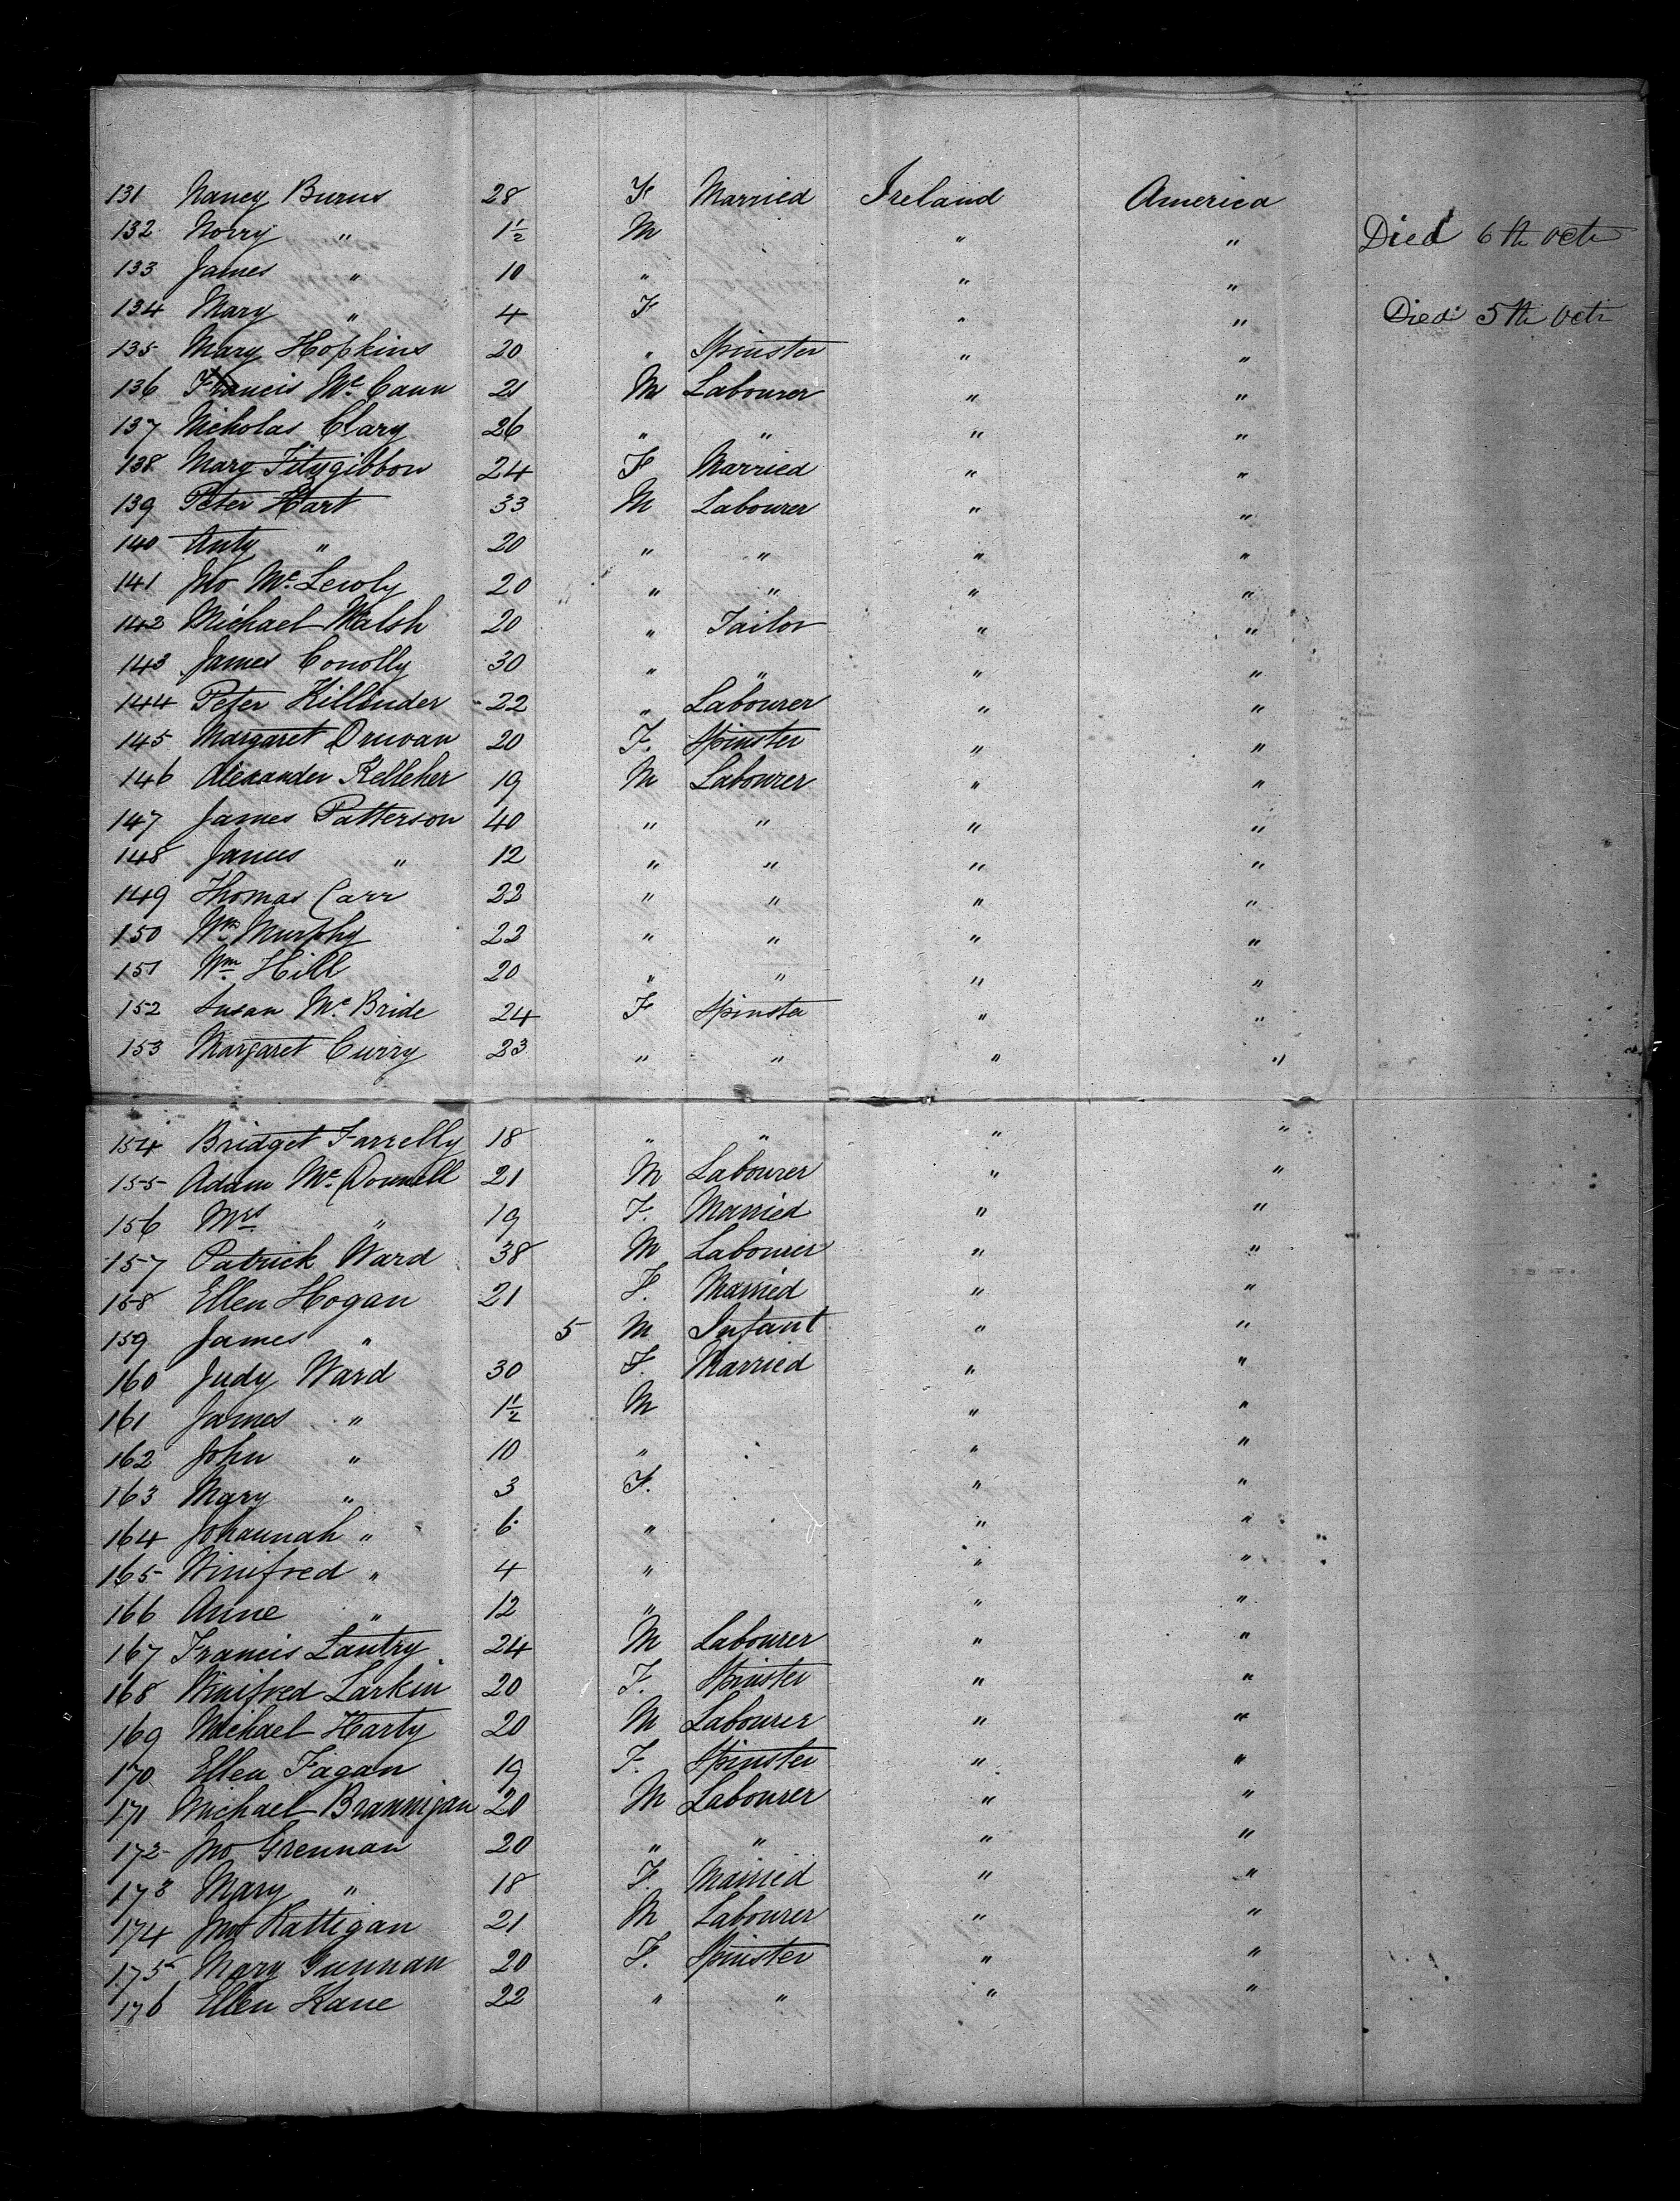 131 Nancy Burns 28 F Married Ireland America
132 Norry " 1½ M " " Died 6th Octr
133 James " 10 " " "
134 Mary " 4 F " " Died 5th Octr
135 Mary Hopkins 20 " Spinster " "
136 Francis Mc Cann 21 M Labourer " "
137 Nicholas Clary 26 " " " "
138 Mary Fitzgibbon 24 F Married " "
139 Peter Hart 33 M Labourer " "
140 Anty " 20 " " " "
141 Jno Mc 20 " " " "
142 Michael Walsh 20 " Tailor " "
143 James Conolly 30 " " " "
144 Peter 22 " Labourer " "
145 Margaret 20 F. Spinster " "
146 Alexander Kelleher 19 M Labourer " "
147 James Patterson 40 " " " "
148 James " 12 " " " "
149 Thomas Carr 22 " " " "
150 Wm Murphy 22 " " " "
151 Wm Hill 20 " " " "
152 Susan Mc Bride 24 F Spinster " "
153 Margaret Curry 23 " " " "
154 Bridget Farrelly 18 " " " "
155 Adam Mc Donnell 21 M Labourer " "
156 Mrs " 19 F. Married " "
157 Patrick Ward 38 M Labourer " "
158 Ellen Hogan 21 F. Married " "
159 James " 5 M Infant " "
160 Judy Ward 30 F. Married " "
161 James " 1½ M " "
162 John " 10 " " "
163 Mary " 3 F. " "
164 Johannah " 6 " " "
165 Winifred " 4 " " "
166 Anne " 12 " " "
167 Francis Lantry 24 M Labourer " "
168 Winifred Larkin 20 F. Spinster " "
169 Michael Harty 20 M Labourer " "
170 Ellen Fagan 19 F. Spinster " "
171 Michael Brannigan 20 M Labourer " "
172 Jno Grennan 20 " " " "
173 Mary " 18 F. Married " "
174 Jno Rattigan 21 M Labourer " "
175 Mary Gunnan 20 F. Spinster " "
176 Ellen Kane 22 " " " "